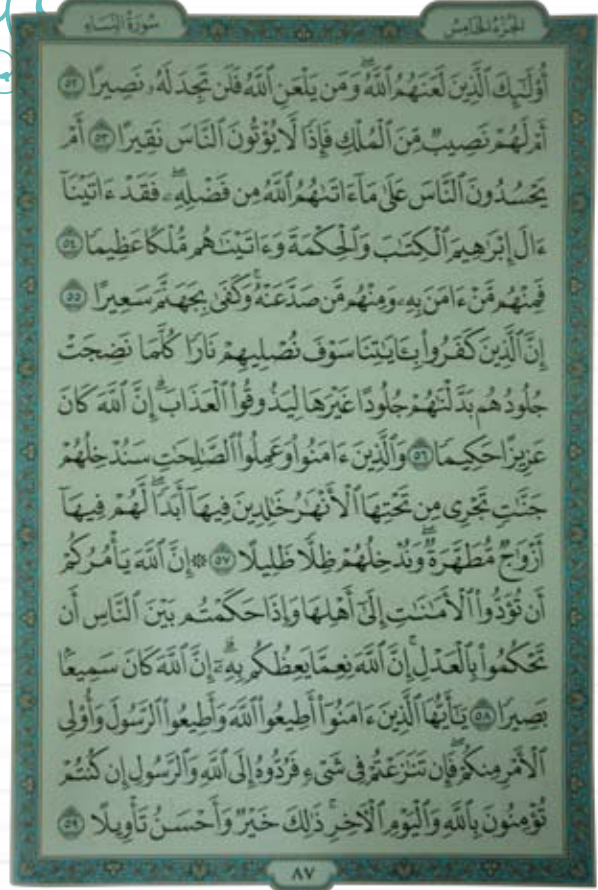 سُورَةُ النِّسَاءِ
الجُزْءُ الخَامِسُ
أُوْلَٰٓئِكَ ٱلَّذِينَ لَعَنَهُمُ ٱللَّهُۖ وَمَن يَلْعَنِ ٱللَّهُ فَلَن تَجِدَ لَهُۥ نَصِيرًا ٥٢
أَمْ لَهُمْ نَصِيبٌ مِّنَ ٱلْمُلْكِ فَإِذًا لَّا يُؤْتُونَ ٱلنَّاسَ نَقِيرًا ٥٣ أَمْ
يَحْسُدُونَ ٱلنَّاسَ عَلَىٰ مَآ ءَاتَىٰهُمُ ٱللَّهُ مِن فَضْلِهِۦۖ فَقَدْ ءَاتَيْنَآ
ءَالَ إِبْرَٰهِيمَ ٱلْكِتَٰبَ وَٱلْحِكْمَةَ وَءَاتَيْنَٰهُم مُّلْكًا عَظِيمًا ٥٤
فَمِنْهُم مَّنْ ءَامَنَ بِهِۦ وَمِنْهُم مَّن صَدَّ عَنْهُۚ وَكَفَىٰ بِجَهَنَّمَ سَعِيرًا ٥٥
إِنَّ ٱلَّذِينَ كَفَرُوا۟ بِـَٔايَٰتِنَا سَوْفَ نُصْلِيهِمْ نَارًا كُلَّمَا نَضِجَتْ
جُلُودُهُم بَدَّلْنَٰهُمْ جُلُودًا غَيْرَهَا لِيَذُوقُوا۟ ٱلْعَذَابَۗ إِنَّ ٱللَّهَ كَانَ
عَزِيزًا حَكِيمًا ٥٦ وَٱلَّذِينَ ءَامَنُوا۟ وَعَمِلُوا۟ ٱلصَّٰلِحَٰتِ سَنُدْخِلُهُمْ
جَنَّٰتٍ تَجْرِى مِن تَحْتِهَا ٱلْأَنْهَٰرُ خَٰلِدِينَ فِيهَآ أَبَدًاۖ لَّهُمْ فِيهَآ
أَزْوَٰجٌ مُّطَهَّرَةٌۖ وَنُدْخِلُهُمْ ظِلًّا ظَلِيلًا ٥٧ ۞ إِنَّ ٱللَّهَ يَأْمُرُكُمْ
أَن تُؤَدُّوا۟ ٱلْأَمَٰنَٰتِ إِلَىٰٓ أَهْلِهَا وَإِذَا حَكَمْتُم بَيْنَ ٱلنَّاسِ أَن
تَحْكُمُوا۟ بِٱلْعَدْلِۚ إِنَّ ٱللَّهَ نِعِمَّا يَعِظُكُم بِهِۦٓۗ إِنَّ ٱللَّهَ كَانَ سَمِيعًۢا
بَصِيرًا ٥٨ يَٰٓأَيُّهَا ٱلَّذِينَ ءَامَنُوٓا۟ أَطِيعُوا۟ ٱللَّهَ وَأَطِيعُوا۟ ٱلرَّسُولَ وَأُو۟لِى
ٱلْأَمْرِ مِنكُمْۖ فَإِن تَنَٰزَعْتُمْ فِى شَىْءٍ فَرُدُّوهُ إِلَى ٱللَّهِ وَٱلرَّسُولِ إِن كُنتُمْ
تُؤْمِنُونَ بِٱللَّهِ وَٱلْيَوْمِ ٱلْءَاخِرِۚ ذَٰلِكَ خَيْرٌ وَأَحْسَنُ تَأْوِيلًا ٥٩
٨٧